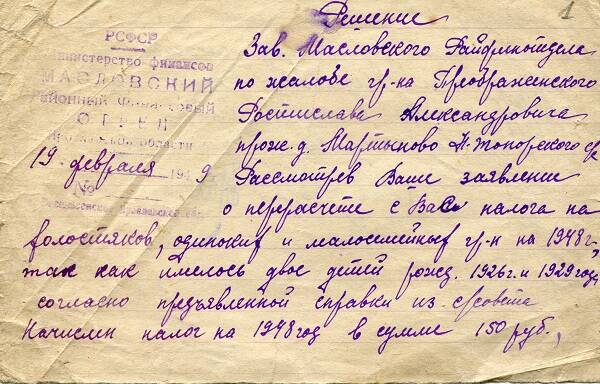 Решение
1
РСФСР
Министерство финансов
МАСЛОВСКИЙ
Районный Финансовый
ОТДЕЛ
области
19 февраля 1949
№
Зав. Масловского Райфинотдела
по жалобе гр-на Преображенского
Ростислава Александровича
прож. д. Мартыново Н-Топорского с/с
Рассмотрев Ваше заявление
о перерасчете с Вас налога на
холостяков, одиноких и малосемейных гр-н на 1948 г,
так как имелось двое детей рожд. 1926 г. и 1929 года,
согласно предъявленной справки из с/совета
Начислен налог на 1948 год в сумме 150 руб.,